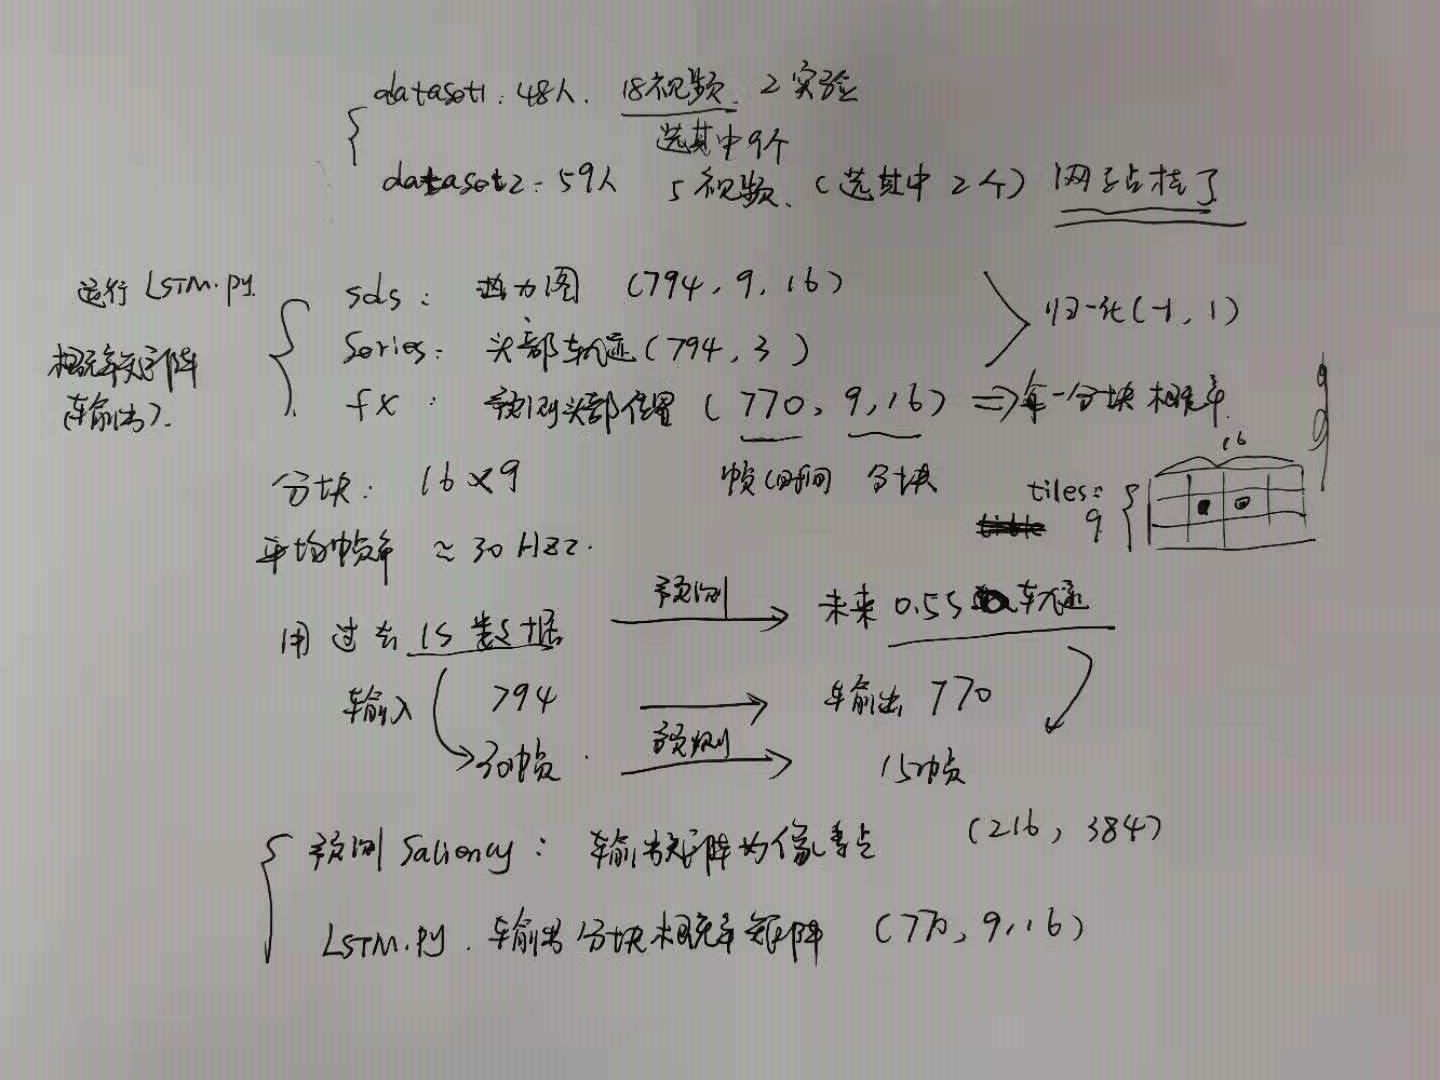 dataset1: 48人. 18视频. 2实验
选其中9个
dataset2: 59人 5视频. (选其中2个) 网站挂了
运行 LSTM.py.
概率矩阵
(输出).
sds: 热力图 (794, 9, 16)
Series: 头部轨迹 (794, 3)
归一化(-1, 1)
fx: 预测头部位置 (770, 9, 16) ⇒ 每一分块概率.
帧(时间) 分块
分块: 16×9
tiles: 9
16
平均帧率 ≈ 30 HZ.
用过去 1S 数据 预测 未来 0.5S 轨迹
输入 794 输出 770
30帧. 预测 15帧
预测 Saliency: 输出矩阵为像素点 (216, 384)
LSTM.py. 输出分块概率矩阵 (770, 9, 16)